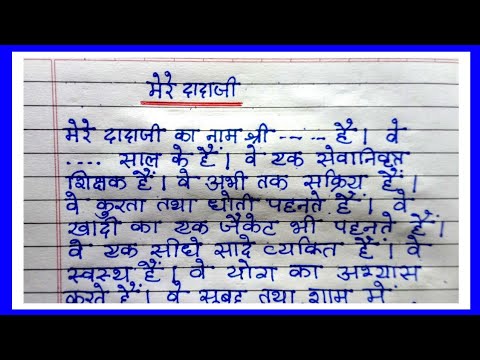 मेरे दादाजी
मेरे दादाजी का नाम श्री ---- है। वे
.... साल के हैं। वे एक सेवानिवृत्त
शिक्षक हैं। वे अभी तक सक्रिय हैं।
वे कुरता तथा धोती पहनते हैं। वे
खादी का एक जैकेट भी पहनते हैं।
वे एक सीधे सादे व्यक्ति हैं। वे
स्वस्थ हैं। वे योग का अभ्यास
करते हैं। वे सुबह तथा शाम में